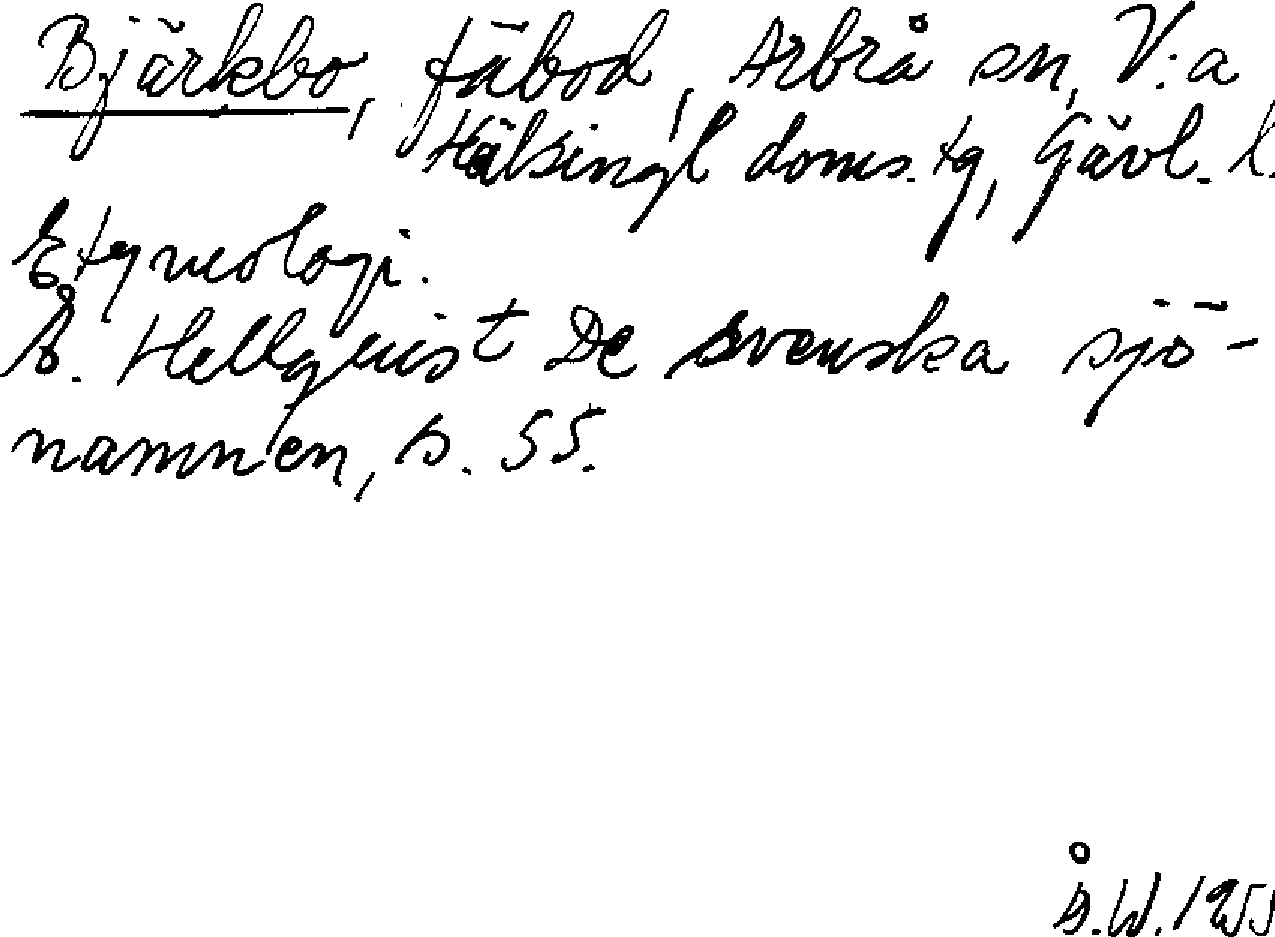 Bjärkbo, fäbod, Arbrå sn, V:a
Hälsingl doms.tg, Gävl. l.
Etymologi.
E. Hellquist De svenska sjö-
namnen, s. 55.
Å.W. 1955